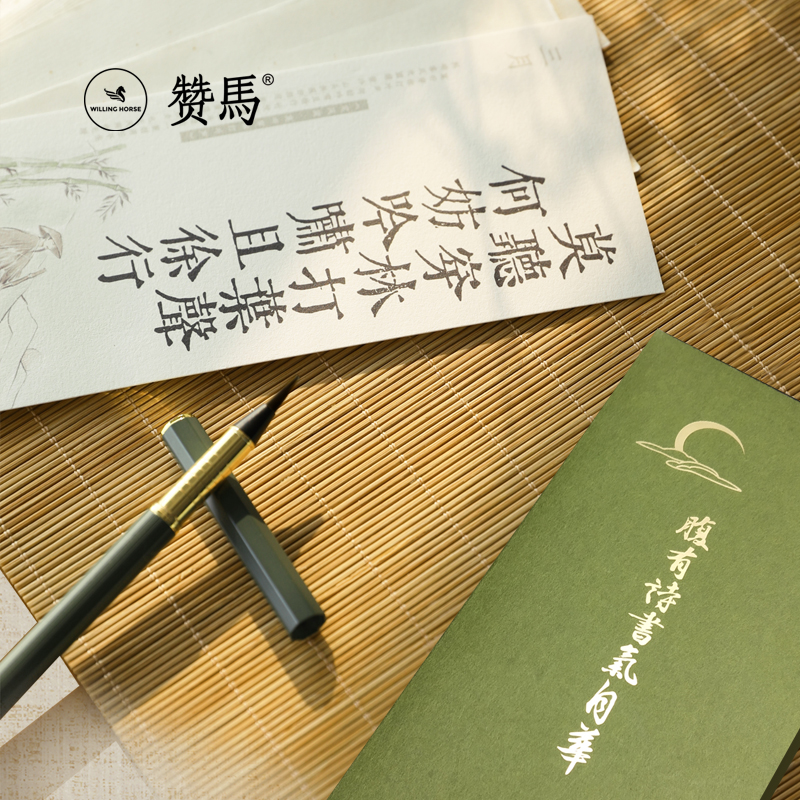 WILLING HORSE
赞馬®
三月
莫聽穿林打葉聲
何妨吟嘯且徐行
腹有诗書氣自華